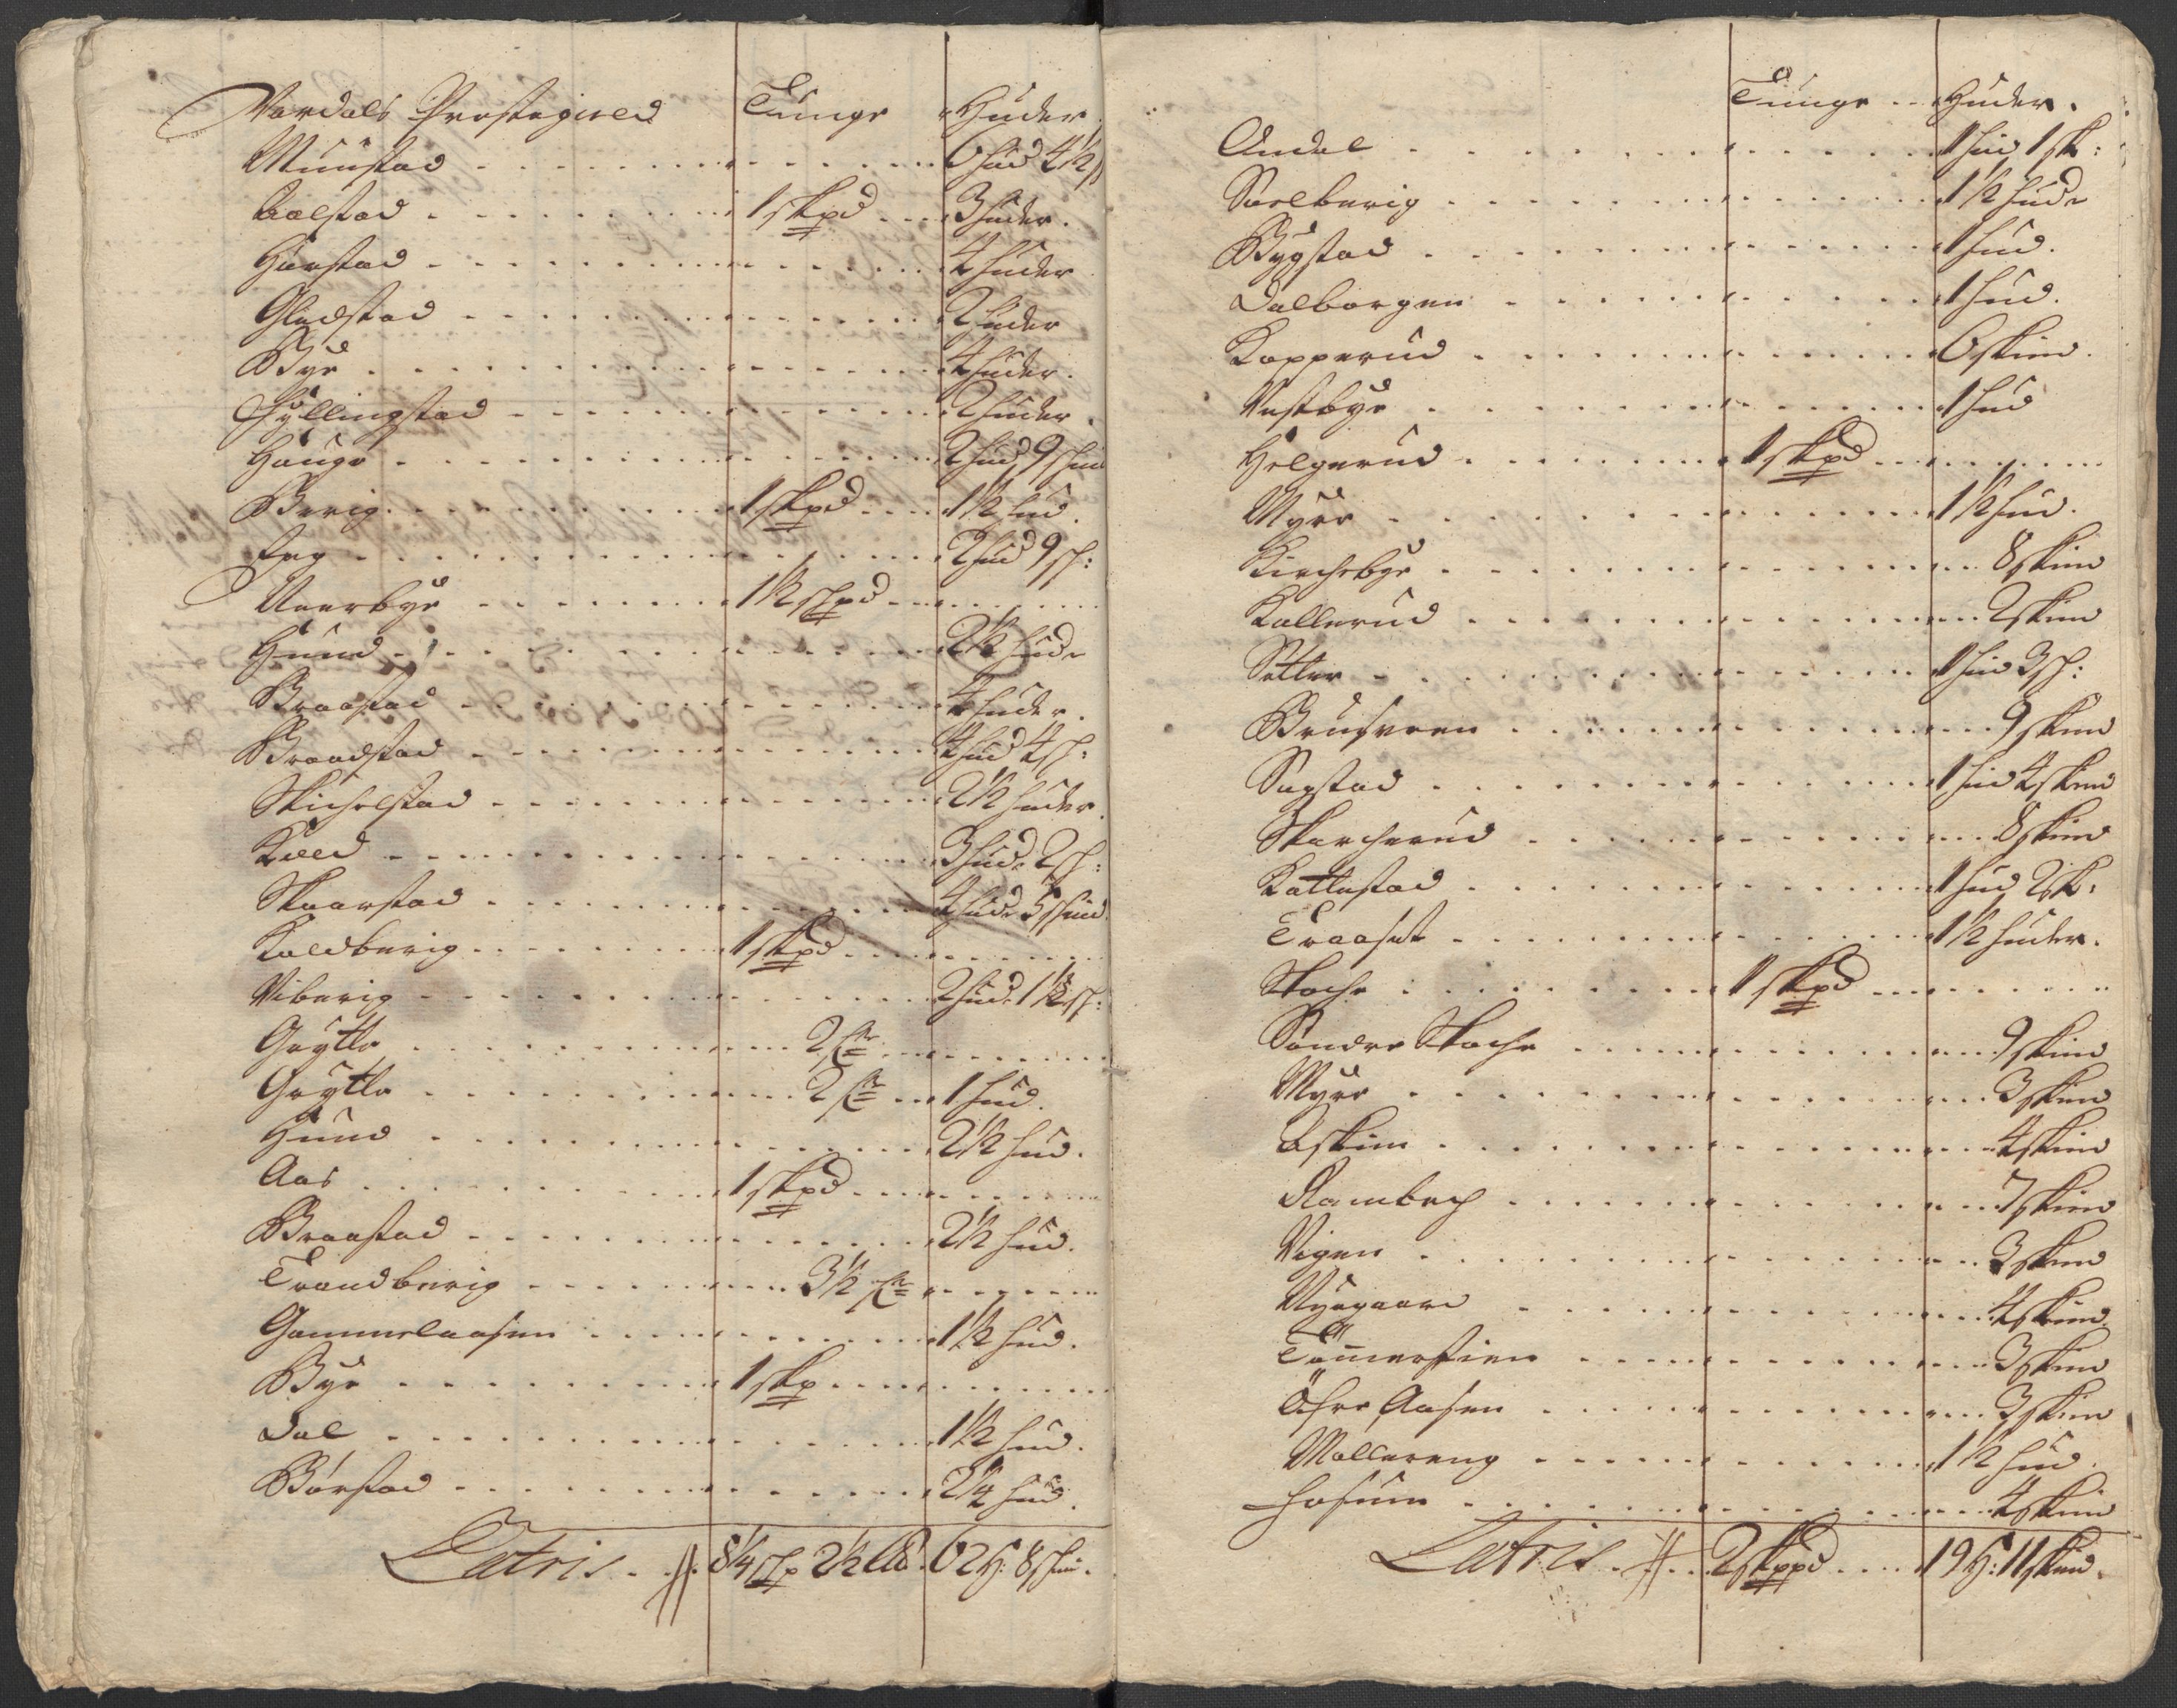 Vardals Prestegield Tunge Huder
Muustad 6 hud 4½ s
Aalstad 1 skpd 3 huder.
Harstad 4 huder
Gladstad 2 huder
Bye 4 huder.
Hyllingstad 2 huder.
Houge 2 hud 9 skin
Berig 1 skpd 1½ hud.
Eeg 2 hud 9 sk:
Neerbye 1½ skpd
Hund 2½ hudr
Braastad 4 huder.
Braadstad 4 hud 4 sk:
Skichelstad 2½ huder.
Qued 3 hudr 2 sk:
Skaarstad 4 hudr 5 skind.
Koldberig 1 skpd
Viberig 2 hudr 1½ sk:
Grytte 2 fr
Grytte 2 fr 1 hud.
Hund 2½ hud.
Aas 1 skpd
Braastad 2½ hud.
Trandberig 3½ fr
Gammelaasen 1½ hud.
Bye 1 skp
Dal 1½ hud.
Børstad 2¼ hud.
Latris 8¼ skp 2½ Lb 62 H: 8 skin.
Tunge Huder.
Andal 1 hud 1 sk:
Soelberig 1½ hudr
Bygstad 1 hud.
Dalborgen 1 hud.
Kapperud 6 skind.
Vestbye 1 hud
Helgerud 1 skpd
Myre 1½ hud.
Kirchebye 8 skind
Kallerud 2 skind
Setter 1 hud 3 sk:
Brusveen 9 skind
Sugstad 1 hud 4 skind
Skarcherud 8 skind
Kattestad 1 hud 2 sk:
Traaset 1½ huder.
Stoche 1 skpd
Søndre Stoche 9 skind
Myre 3 skind
Askim 4 skind
Rambech 7 skind
Vigen 3 skind
Nyegaard 4 skind.
Tømmerstien 3 skind
Øfre Aasen 3 skind
Møllereng 1½ hud.
Hofsum 4 skind
Latris 2 skppd 19 H: 11 skind.